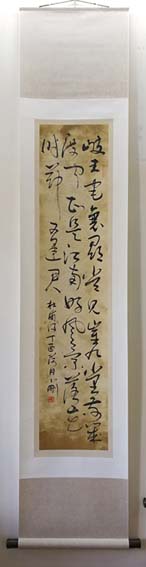 岐王宅裏尋常見崔九堂前幾
度聞正是江南好風景落花
時節又逢君
杜甫詩丁酉